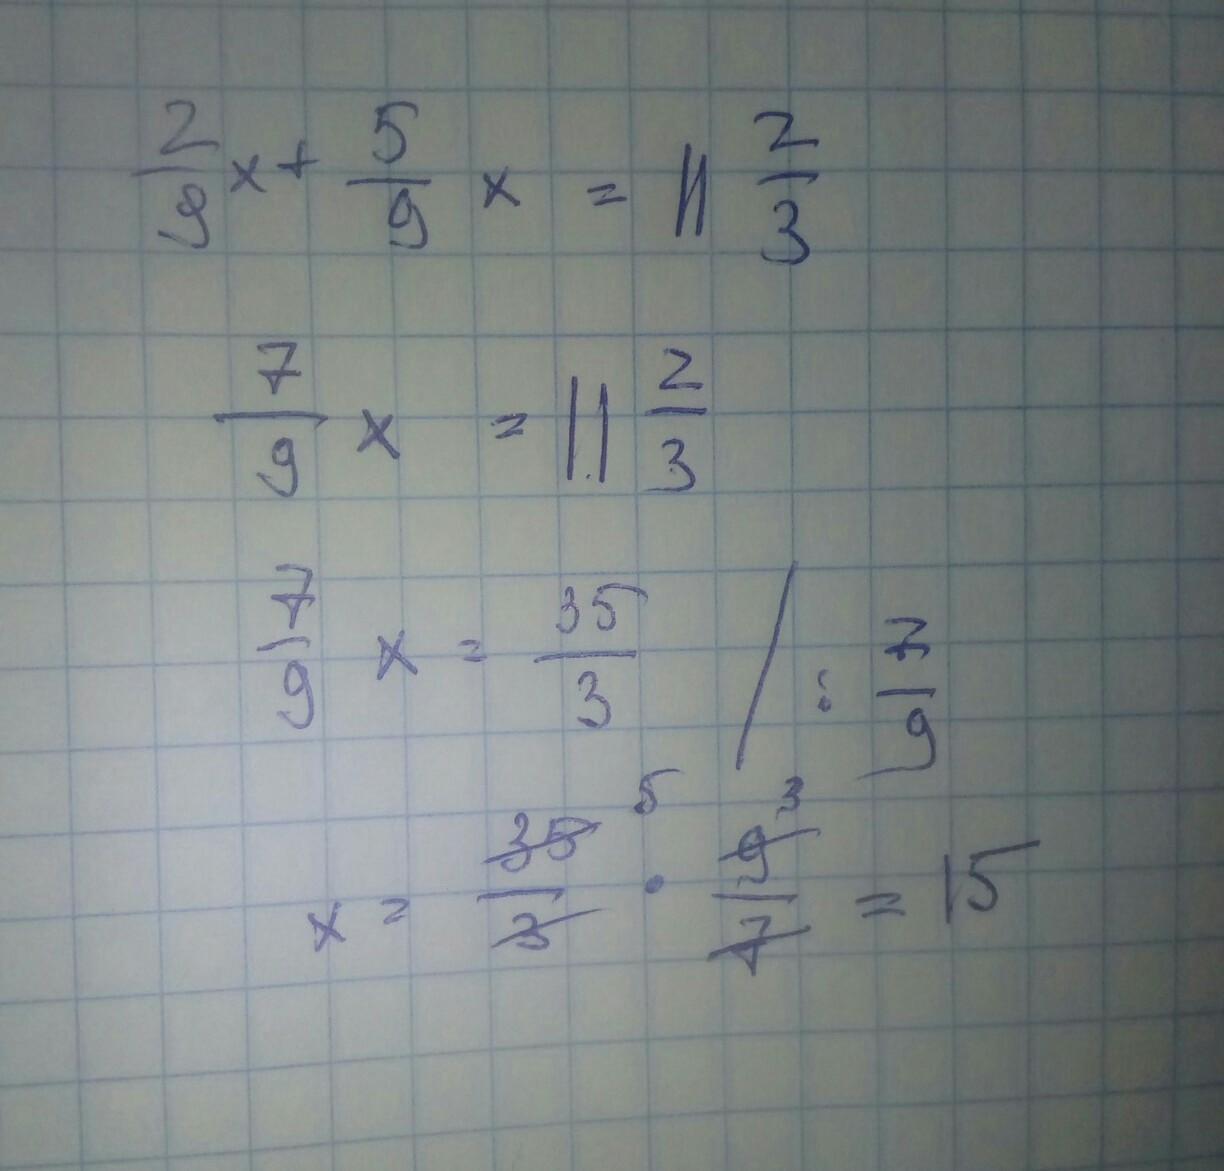 2/9 x + 5/9 x = 11 2/3
7/9 x = 11 2/3
7/9 x = 35/3 / : 7/9
5 3
x = 35/3 · 9/7 = 15